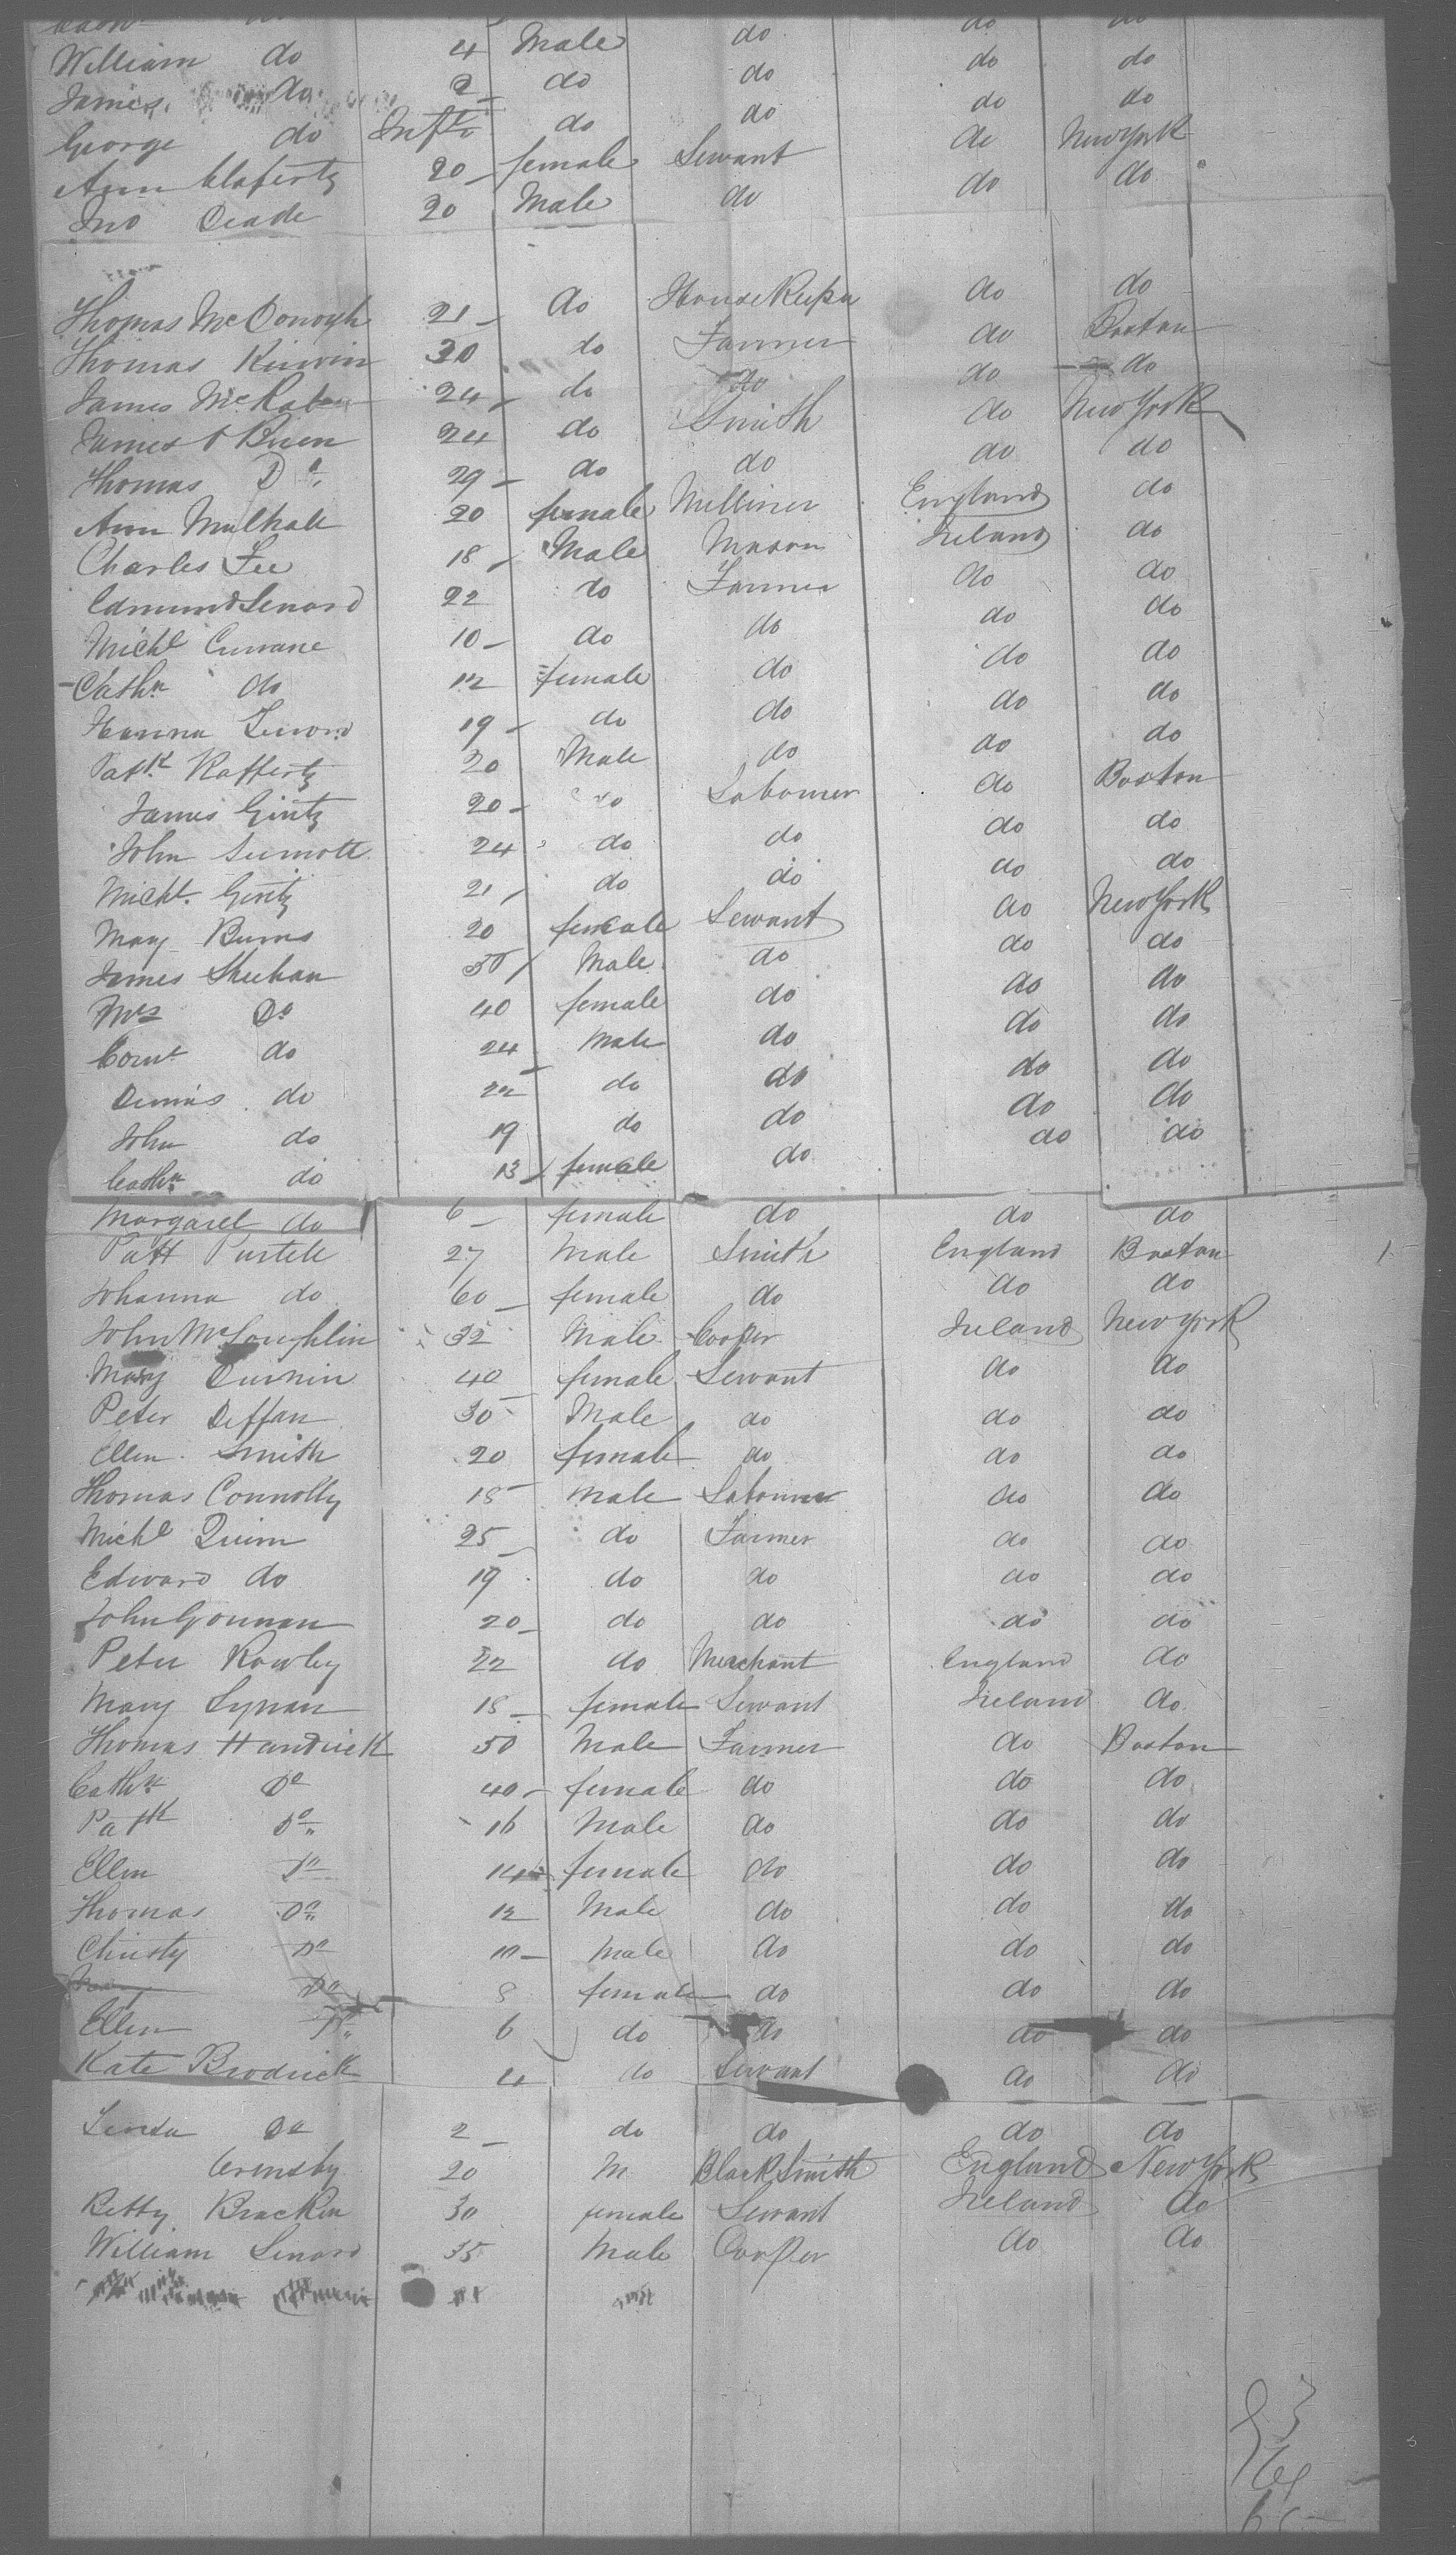 William do 4 Male do do do
James do 2 do do do do
George do Inft do do do do
Ann 20 female Servant do New York
Jno Deade 20 Male do do do
Thomas McDonogh 21 do House Keeper do do
Thomas Kirwin 30 do Farmer do Boston
James McKabe 24 do do do do
James O Brien 24 do Smith do New York
Thomas Do 29 do do do do
Ann Mulhall 20 female Milliner England do
Charles Lee 18 Male Mason Ireland do
Edmund Lenard 22 do Farmer do do
Michl Currane 10 do do do do
Cathn do 12 female do do do
Hanna Lenard 19 do do do do
Patk Rafferty 20 Male do do do
James Ginty 20 do Labourer do Boston
John 24 do do do do
Michl Ginty 21 do do do do
Mary Burns 20 female Servant do New York
James Sheehan 50 Male do do do
Mrs Do 40 female do do do
Corns do 24 Male do do do
Dennis do 22 do do do do
John do 19 do do do do
Cathn do 13 female do do do
Margaret do 6 female do do do
Patt Purtell 27 Male Smith England Boston
Johanna do 60 female do do do
John McLoughlin 32 Male Cooper Ireland New York
Mary Durnin 40 female Servant do do
Peter Deffan 30 Male do do do
Ellen Smith 20 female do do do
Thomas Connolly 18 Male Labourer do do
Michl Quinn 25 do Farmer do do
Edward do 19 do do do do
John Gounan 20 do do do do
Peter Rowley 22 do Merchant England do
Mary Lynan 18 female Servant Ireland do
Thomas Handrick 50 Male Farmer do Boston
Cathn Do 40 female do do do
Patk Do 16 Male do do do
Ellen Do 14 female do do do
Thomas Do 12 Male do do do
Christy Do 10 Male do do do
Do 8 female do do do
Ellen Do 6 do do do do
Kate Brodrick 4 do Servant do do
Do 2 do do do do
Ormsby 20 M Black Smith England New York
Betty Bracken 30 female Servant Ireland do
William Lenard 35 Male Cooper do do